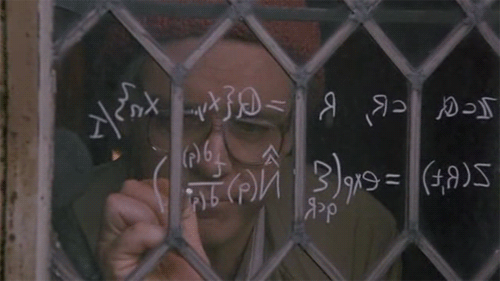 Z⊂Q, ⊂R, R = Q{x,... xₙ}/I
Z(R,t) = exp(Σ_{q⊂R} N̂(q) t^{d(q)}/d(q))